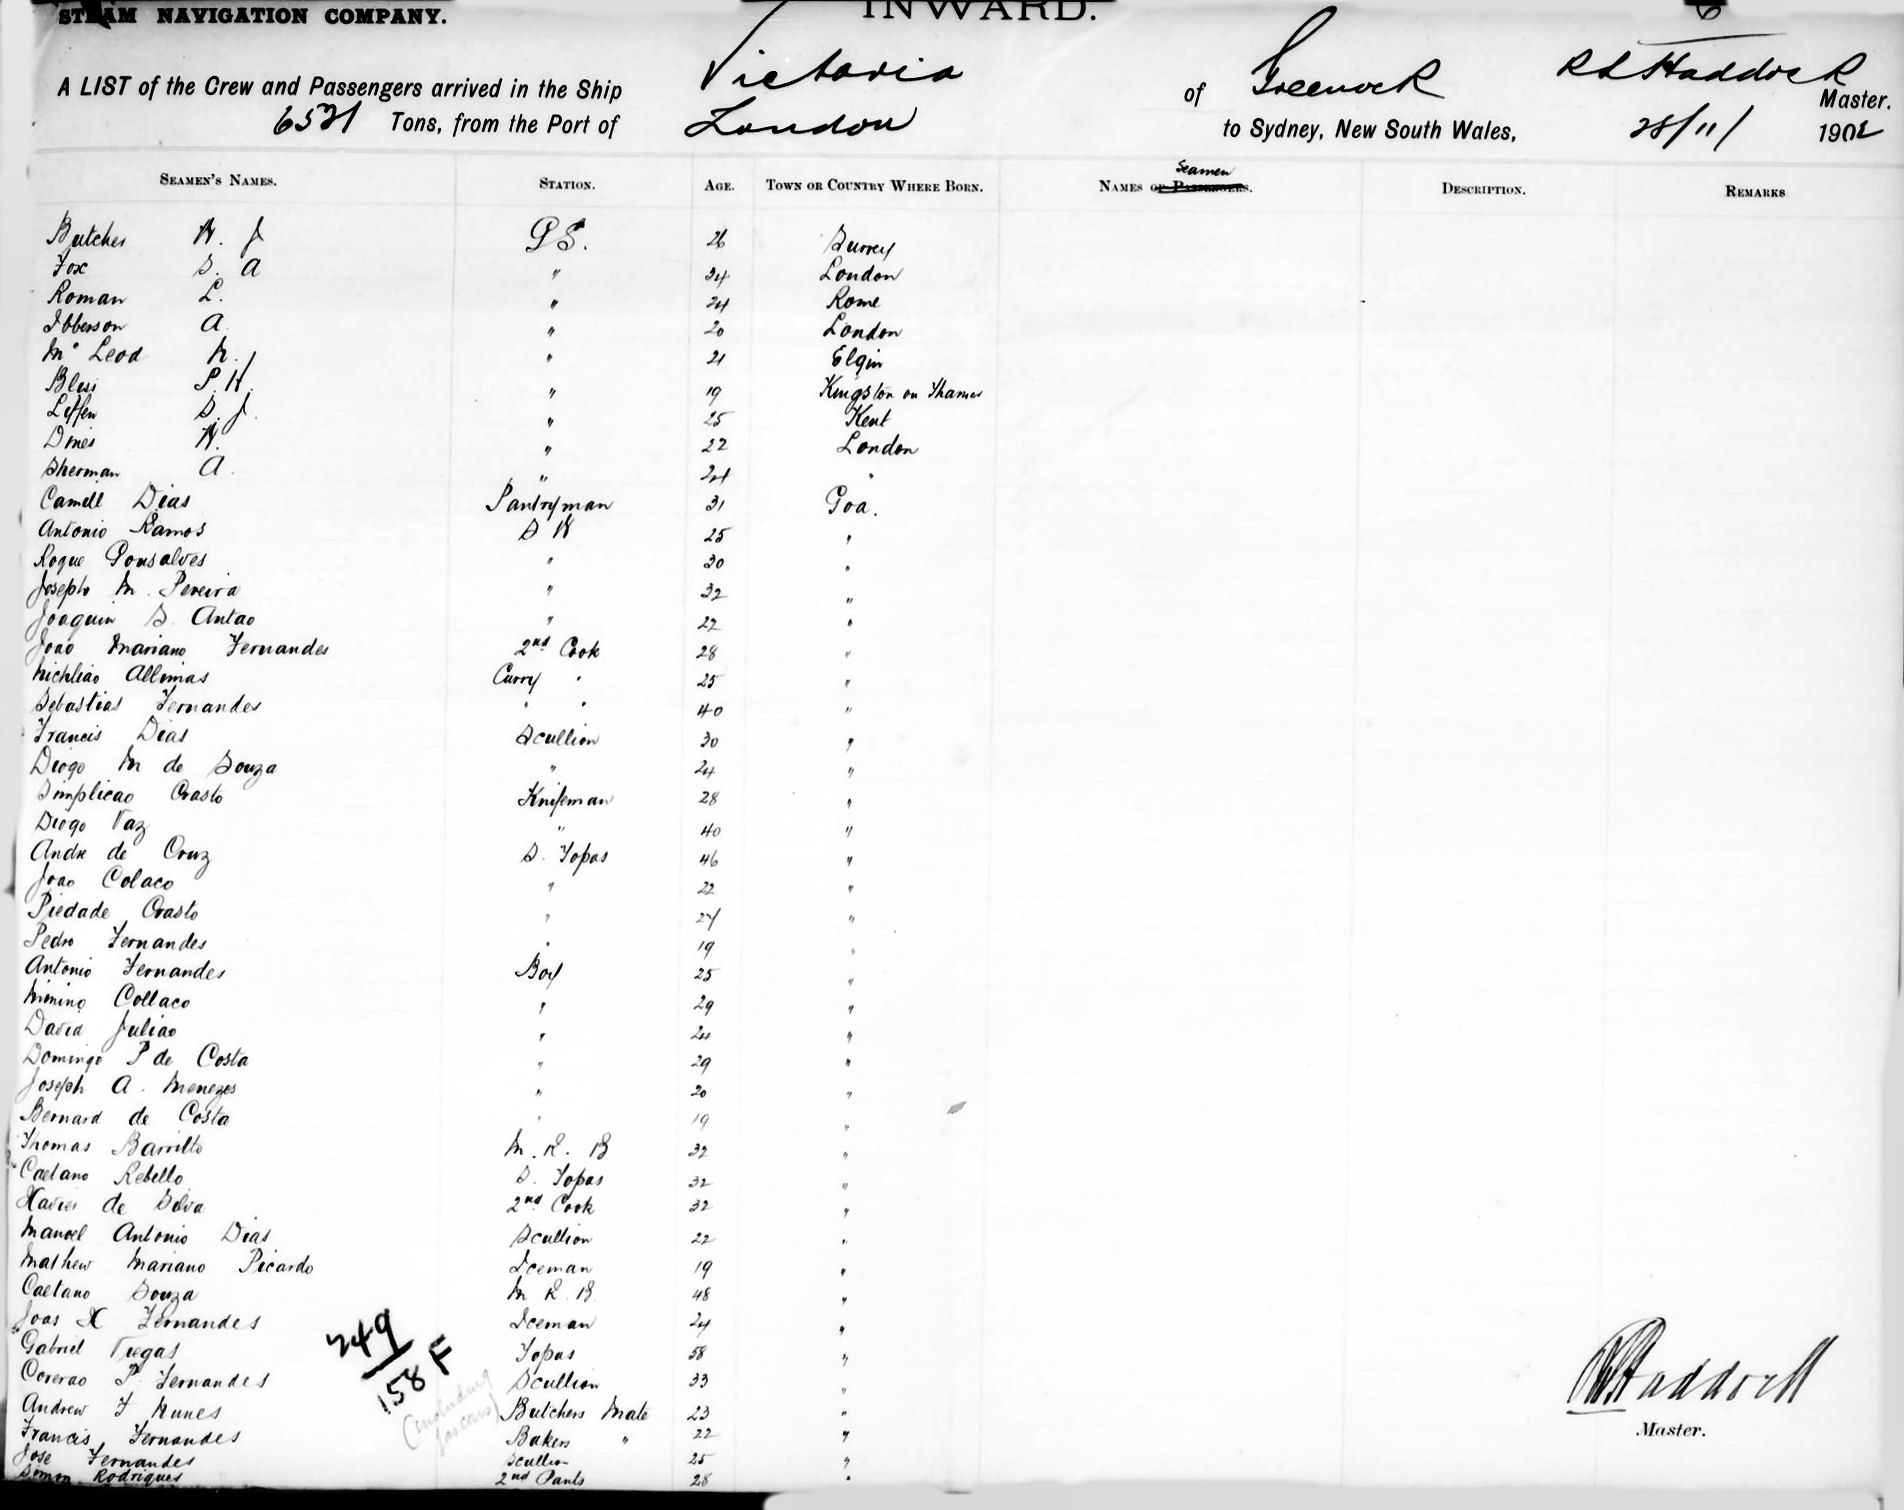 STEAM NAVIGATION COMPANY. INWARD. 6
A LIST of the Crew and Passengers arrived in the Ship Victoria of Greenock R L Haddock Master.
6521 Tons, from the Port of London to Sydney, New South Wales, 28/11/ 1902
SEAMEN'S NAMES. STATION. AGE. TOWN OR COUNTRY WHERE BORN. NAMES OF PASSENGERS. Seamen DESCRIPTION. REMARKS
Butcher W. J GS. 26 Surrey
Fox S. A " 34 London
Roman L. " 24 Rome
Ibberson A. " 20 London
Mc Leod N. " 21 Elgin
Bless P. H. " 19 Kingston on Thames
Leffen S. J. " 25 Kent
Dines W. " 22 London
Sherman A. " 24 "
Camell Dias Pantryman 31 Goa.
Antonio Ramos S W 25 "
Roque Gonsalves " 30 "
Joseph M. Pereira " 32 "
Joaquim S. Antao " 22 "
Joao Mariano Fernandes 2nd Cook 28 "
Michliao Allimas Curry " 25 "
Sebastias Fernandes " " 40 "
Francis Dias Scullion 30 "
Diogo M de Souza " 24 "
Simplicao Crasto Knifeman 28 "
Diogo Vaz " 40 "
Andre de Cruz S. Topas 46 "
Joao Colaco " 22 "
Piedade Crasto " 24 "
Pedro Fernandes " 19 "
Antonio Fernandes Boy 25 "
Minino Collaco " 29 "
David Juliao " 24 "
Domingo P de Costa " 29 "
Joseph A. Menezes " 20 "
Bernard de Costa " 19 "
Thomas Barritto M. R. B 32 "
Caetano Rebello S. Topas 32 "
Xavier de Silva 2nd Cook 32 "
Manoel Antonio Dias Scullion 22 "
Mathew Mariano Picardo Iceman 19 "
Caetano Souza M R. B. 48 "
Joas X Fernandes Iceman 24 "
Gabriel Viegas Topas 58 "
P. Fernandes Scullion 33 "
Andrew F Nunes Butchers Mate 23 "
Francis Fernandes Bakers " 22 "
Jose Fernandes Scullion 25 "
Simon Rodrigues 2nd Pants 28 "
249
158 F
(including Lascars)
R L Haddock
Master.